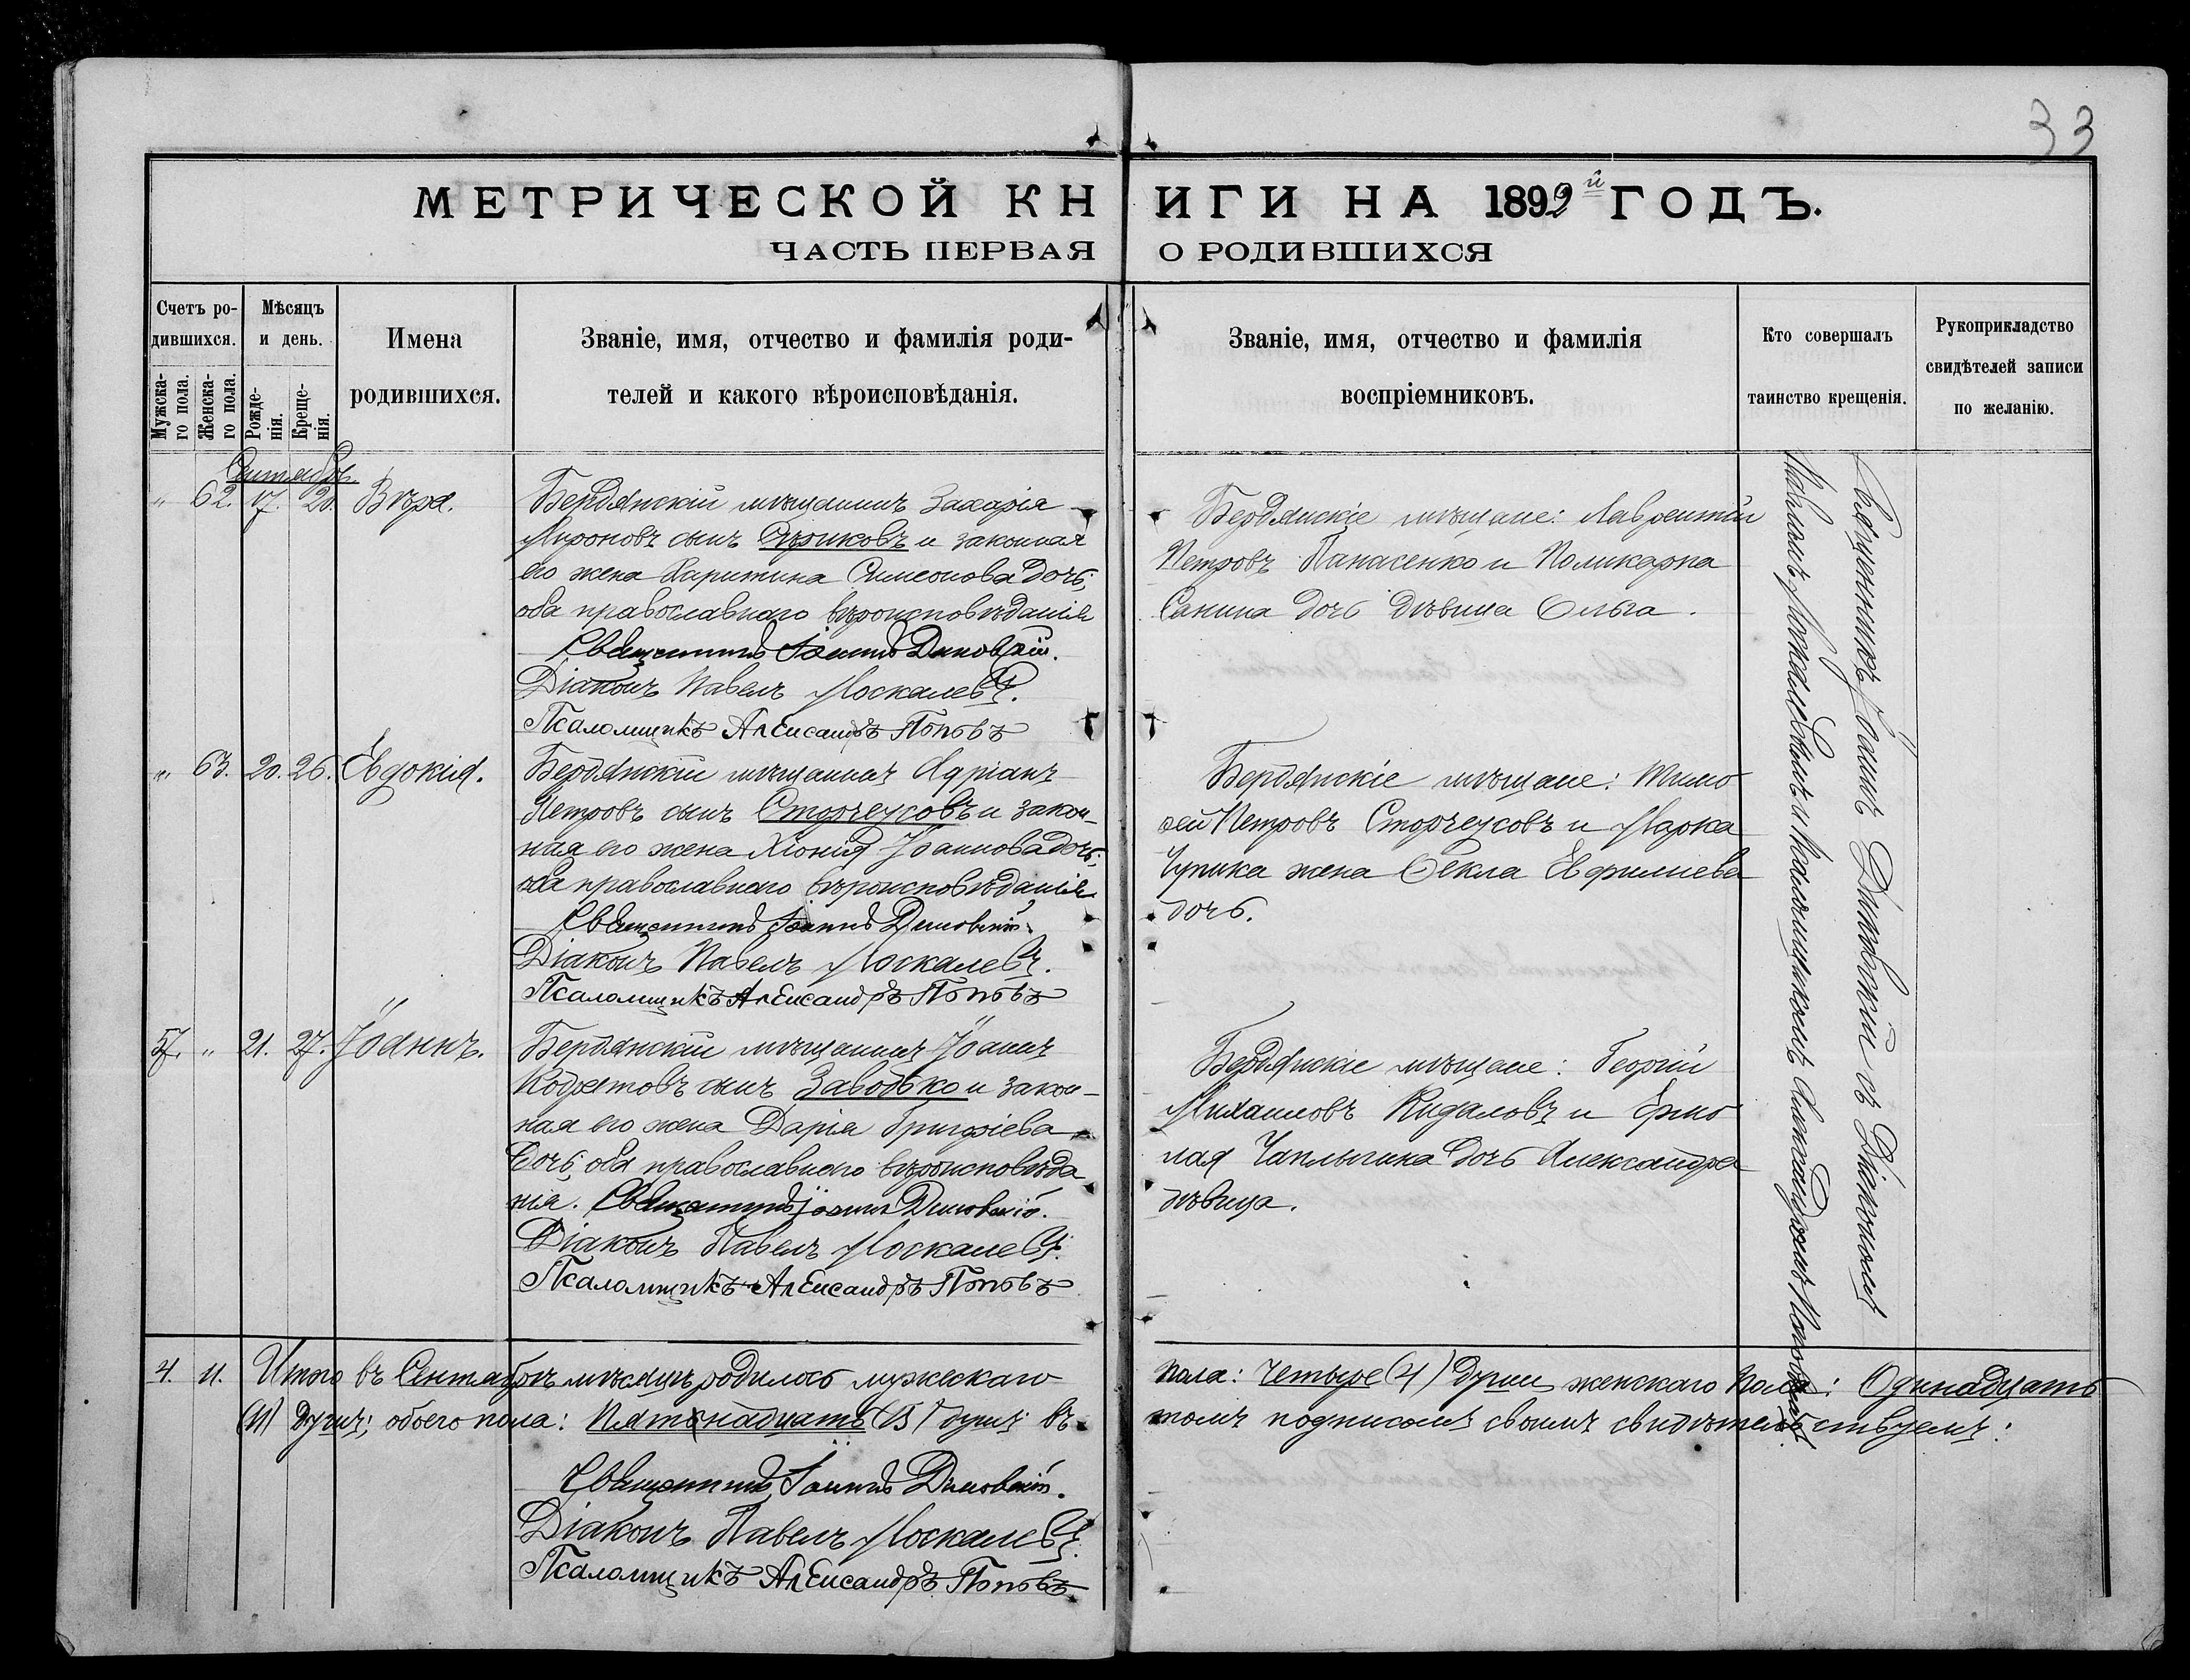 33
МЕТРИЧЕСКОЙ КНИГИ НА 1892й ГОДЪ.
ЧАСТЬ ПЕРВАЯ О РОДИВШИХСЯ
Счетъ ро-
дившихся.
Мужска-
го пола.
Женска-
го пола.
Мѣсяцъ
и день.
Рожде-
нія.
Креще-
нія.
Имена
родившихся.
Званіе, имя, отчество и фамилія роди-
телей и какого вѣроисповѣданія.
Званіе, имя, отчество и фамилія
воспріемниковъ.
Кто совершалъ
таинство крещенія.
Рукоприкладство
свидѣтелей записи
по желанію.
Сентябрь
" 62. 17. 20. Вѣра.
Бердянскій мѣщанинъ Захарія
Мироновъ сынъ и законная
его жена Харитина Симеонова дочь;
оба православнаго вѣроисповѣданія
Священникъ Іоаннъ Диковскій.
Діаконъ Павелъ Москалевъ.
Псаломщикъ Александръ Поповъ
Бердянскіе мѣщане: Лаврентій
Петровъ Панасенко и Поликарпа
Санина дочь дѣвица Ольга.
" 63. 20. 26. Евдокія.
Бердянскій мѣщанинъ Адріанъ
Петровъ сынъ Сторчеусовъ и закон-
ная его жена Хіонія Іоаннова дочь;
оба православнаго вѣроисповѣданія
Священникъ Іоаннъ Диковскій.
Діаконъ Павелъ Москалевъ.
Псаломщикъ Александръ Поповъ
Бердянскіе мѣщане: Тимо
ѳей Петровъ Сторчеусовъ и Марка
жена Ѳекла Евфимиева
дочь.
57. " 21. 27. Іоаннъ.
Бердянскій мѣщанинъ Іоаннъ
Кодратовъ сынъ Заводько и закон-
ная его жена Дарія Григоріева
дочь; оба православнаго вѣроисповѣда
нія. Священникъ Іоаннъ Диковскій.
Діаконъ Павелъ Москалевъ.
Псаломщикъ Александръ Поповъ
Бердянскіе мѣщане: Георгій
Михаиловъ Кидаловъ и Ермо
лая Чаплыгина дочь Александра
дѣвица.
Священникъ Іоаннъ Диковскій съ Діакономъ
Павломъ Москалевымъ и Псаломщикомъ Александромъ Поповымъ.
4. 11. Итого въ Сентябрѣ мѣсяцѣ родилось мужескаго пола: Четыре (4) души женскаго пола: Одинадцать
(11) душъ; обоего пола: Пятьнадцать (15) душъ въ томъ подписомъ своимъ свидѣтельствуемъ:
Священникъ Іоаннъ Диковскій.
Діаконъ Павелъ Москалевъ.
Псаломщикъ Александръ Поповъ